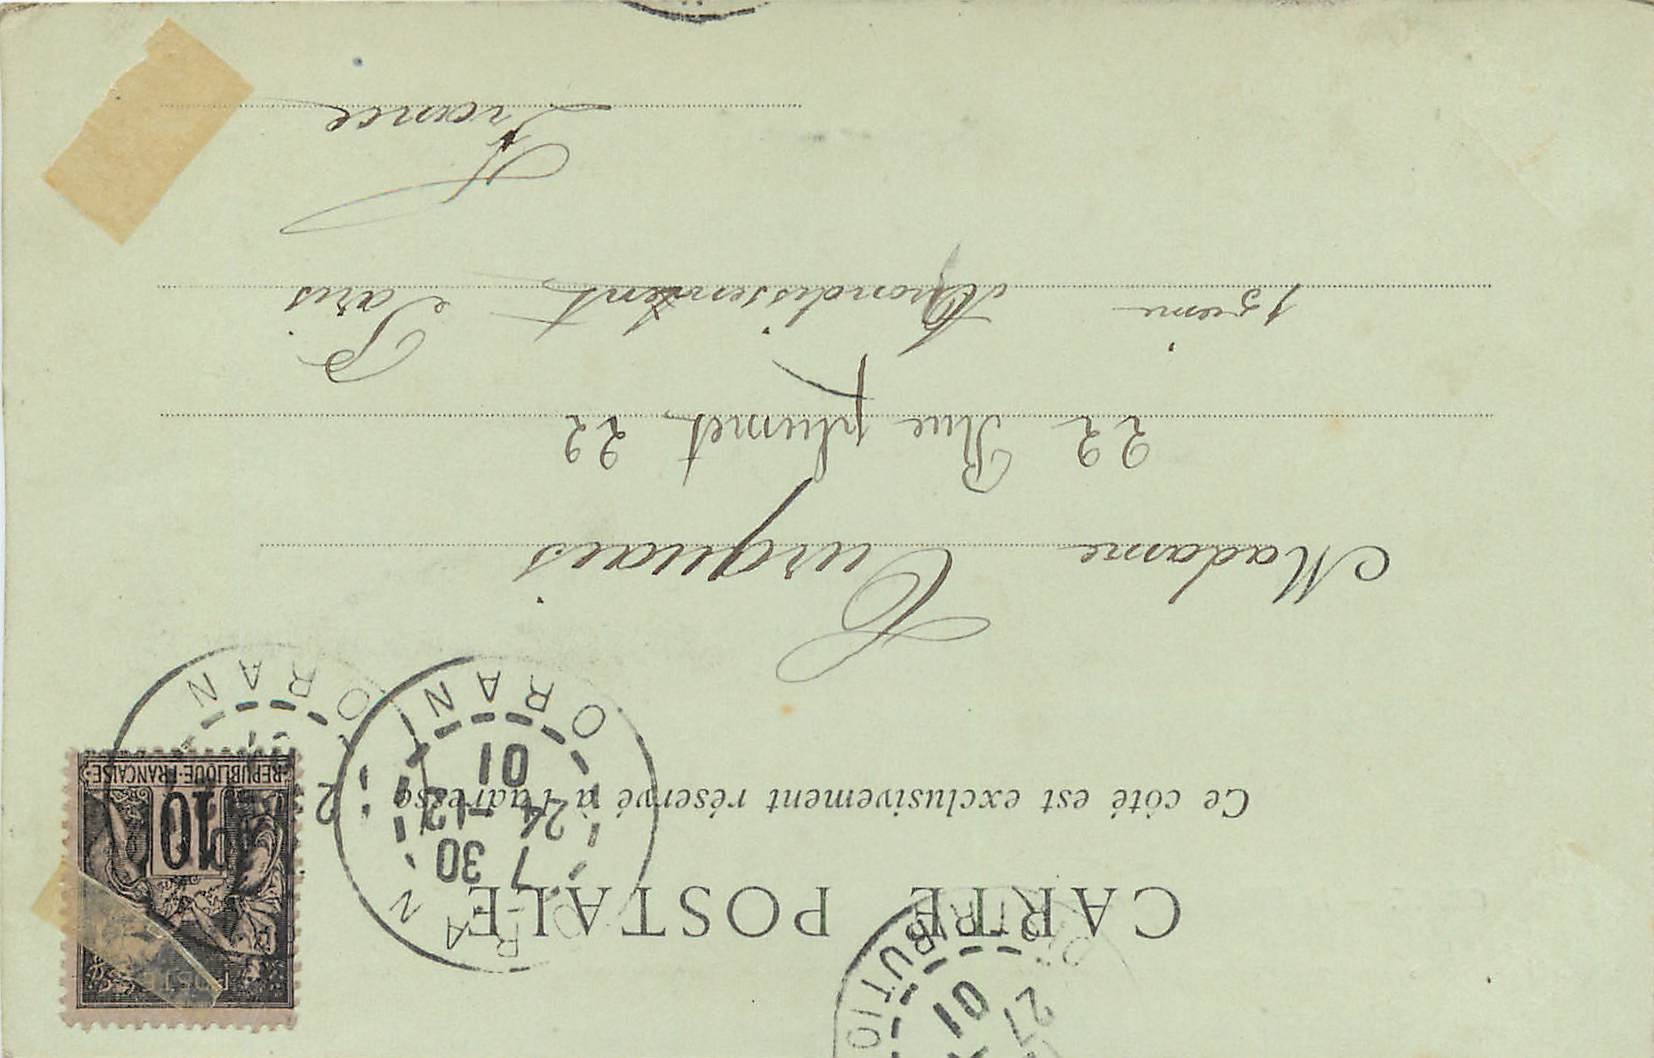 CARTE POSTALE
Ce côté est exclusivement réservé à l'adresse
REPUBLIQUE FRANÇAISE
10
POSTES
ORAN
7 30
24 -12
01
ORAN
ORAN
2
DISTRIBUTIO
27
01
Madame Turquais
22 Rue plumet 22
15ieme Arrondissement Paris
France